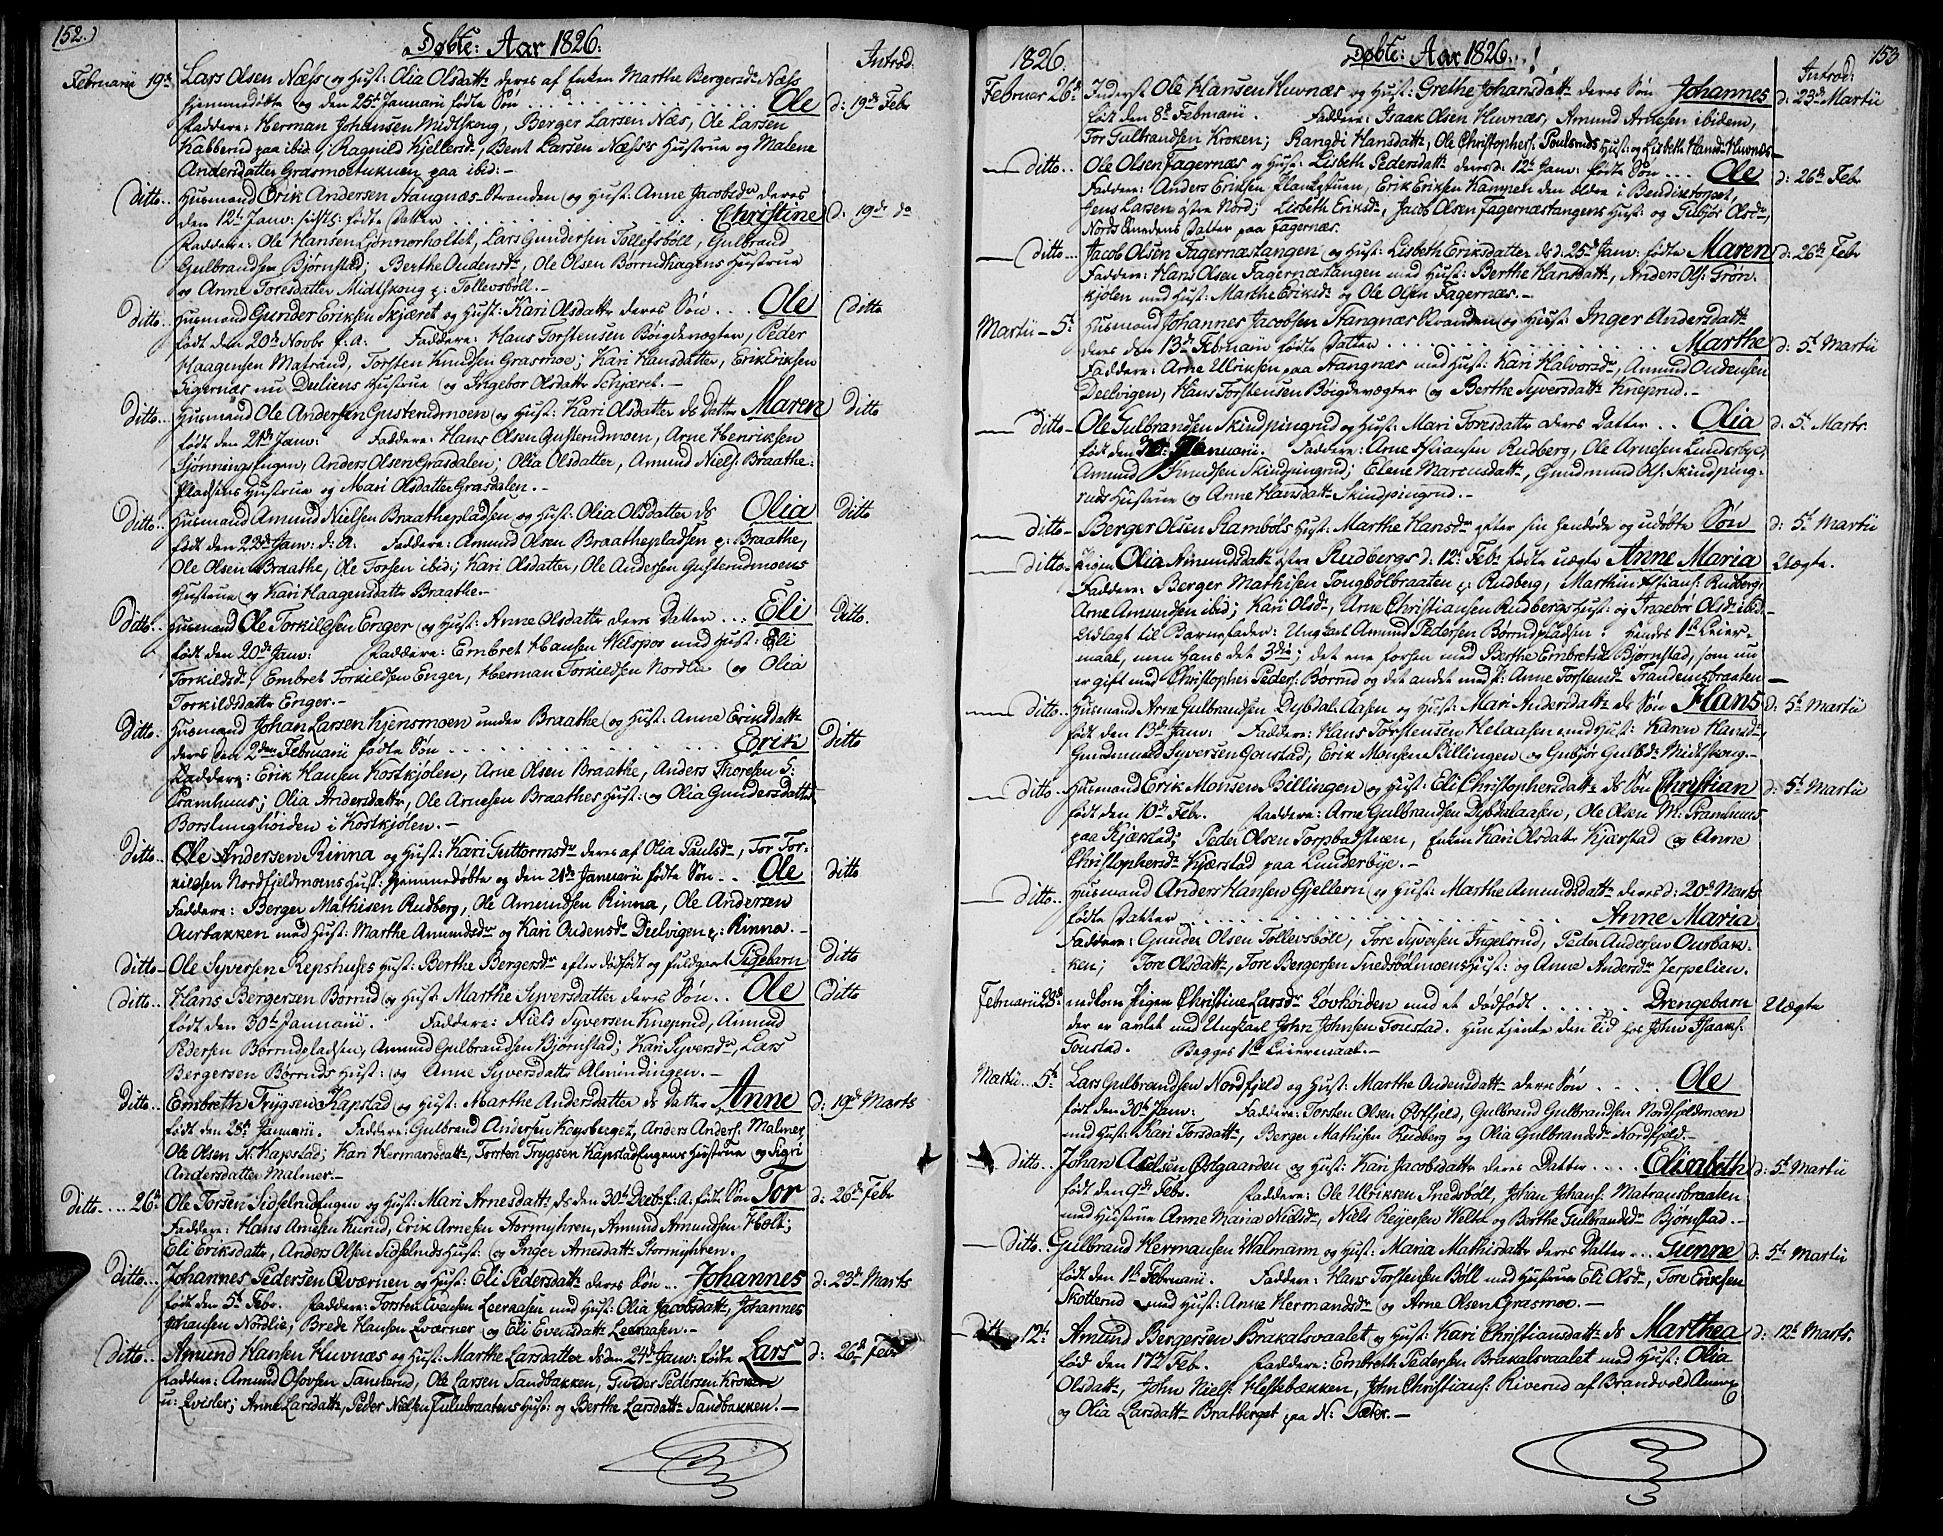 152.)
Døbte: Aar 1826:
Introd:
Februarii 19de Lars Olsen Næss og Hust: Olia Olsdatt deres af Enken Marthe Bergersd. Næss
hjemmedøbte og den 25de Januarii fødte Søn . . . Ole d: 19de Febr
Faddere: Herman Johansen Midtskong, Berger Larsen Næs, Ole Larsen
Kabberud paa ibid; Ragnild Kjellersd., Bent Larsen Næss's Hustrue og Malene
Andersdatter Grasmoetuknen paa ibid: -
Ditto.. Husmand Erik Andersen Haugnæs-Stranden og Hust: Anne Jacobsdr deres
den 12te Janu: fødte Datter . . . Christine d. 19de do
Faddere: Ole Hansen Linnorholtet, Lars Gundersen Tollefsböll, Gulbrand
Gulbrandsen Bjørnstad; Berthe Oudensdr, Ole Olsen Børrudhagens Hustrue
og Anne Toresdatter Midtskong p: Tollevsböll. -
Ditto.. Husmand Gunder Eriksen Skjæret og Hust: Kari Olsdatt deres Søn . . . Ole Ditto
født den 20de Novbr f. A. Faddere: Hans Torstensen Böigdevogter, Peder
Haagensen Matrand, Torsten Knudsen Grasmoe; Kari Hansdatter, Erik Eriksen
Sigernæs nu Duliens Hustrue og Ingebor Olsdatter Schjæret. -
Ditto.. Husmand Ole Andersen Gusterudmoen og Hust: Kari Olsdatter ds Datter Maren Ditto
født den 21de Janu: Faddere: Hans Olsen Gusterudmoen, Arne Henriksen
Anders Olsen Grasdalen; Olia Olsdatter, Amund Niels: Braathe-
Pladsens Hustrue og Mari Olsdatter Grasdalen. -
Ditto.. Husmand Amund Nielsen Braathepladsen og Hust: Olia Olsdatter ds Olia Ditto
født den 23de Janu: d: A. Faddere: Amund Olsen Braathepladsen p: Braathe,
Ole Olsen Braathe, Ole Torsen ibid; Kari Olsdatter, Ole Andersen Gusterudmoens
Hustrue og Kari Haagensdatter Braathe. -
Ditto.. Husmand Ole Torkildsen Enger og Hust: Anne Olsdatter deres Datter . . . Eli Ditto.
født den 20de Janu: Faddere: Embret Hansen Velspor med Hust: Eli
Torkildsd., Embret Torkildsen Enger, Herman Torkildsen Nordlie og Olia
Torkildsdatter Enger. -
Ditto. Husmand Johan Larsen Kjensmoen under Braathe og Hust: Anne Eriksdatt
deres den 2den Februarii fødte Søn . . . Erik Ditto
Faddere: Erik Hansen Kostkjølen, Arne Olsen Braathe, Anders Thoresen S:
Framhuus; Olia Andersdatter, Ole Arnesen Braathes Hust: og Olia Gundersdatter
Borstunghöiden i Kostkjölen. -
Ditto.. Ole Andersen Rinna og Hust: Kari Guttormsdr deres af Olia Paulsdr, Tor Tor-
kildsen Nordfjeldmoens Hust: hjemmedøbte og den 21de Januarii fødte Søn . . Ole Ditto
Faddere: Berger Mathisen Rudberg, Ole Amundsen Rinna, Ole Andersen
Ourbakken med Hust: Marthe Amundsdr og Kari Oudensdr Deelvigen p: Rinna. -
Ditto- Ole Syversen Repshuses Hust: Berthe Bergersdr efter dødfødt og fuldgaaet Pigebarn Ditto
Ditto.. Hans Bergersen Børrud og Hust: Marthe Syversdatter deres Søn . . Ole Ditto
født den 30te Januarii. Faddere: Niels Syversen Kneprud, Amund
Pedersen Børrudpladsen, Amund Gulbrandsen Bjørnstad; Kari Syversdr, Lars
Bergersen Børruds Hust: og Anne Syversdatter Almindingen. -
Ditto.. Embreth Trygsen Kapstad og Hust: Marthe Andersdatter ds Datter Anne d: 19de Marts
født den 25de Januarii. Faddere: Gulbrand Andersen Kongsberget, Anders Anders: Malmer,
Ole Olsen N. Kapstad; Kari Hermansdatt, Torsten Trygsen Kapstadengens Hustrue og Sigri
Andersdatter Malmer. -
Ditto. . . . 26de Ole Torsen Sidselrudengen og Hust: Mari Arnesdatt ds den 30te Decbr f. A: fødte Søn Tor d: 26de Febr
Faddere: Hans Arnesen Kurud, Erik Arnesen Tormyhren, Amund Amundsen Holt;
Eli Eriksdatter, Anders Olsen Sidselruds Hust: og Inger Arnesdatt Tormyhren.
Ditto... Johannes Pedersen Qværnen og Hust: Eli Pedersdatt deres Søn . . Johannes d: 23de Marts
født den 5te Febr. Faddere: Torsten Evensen Leeraasen med Hust: Olia Jacobsdatt, Johannes
Johansen Nordlie, Brede Hansen Qværner og Eli Evensdatt Leeraasen. -
Ditto... Amund Hansen Huvnæs og Hust: Marthe Larsdatter ds den 24de Janu: fødte Lars d: 26de Febr
Fadder: Amund Olovsen Sanderud, Ole Larsen Sandbakken, Gunder Pedersen Kroken
u: Qvisler; Anne Larsdatt, Peder Nielsen Fulubraatens Hust: og Berthe Larsdatt Sandbakken. -
153
1826. Døbte: Aar 1826. Introd:
Februar 26de Inderst Ole Hansen Huvnæs og Hust: Grethe Johansdatt deres Søn Johannes d: 23de Martii
født den 8de Februarii. Faddere: Isaak Olsen Huvnæs, Amund Arnesen ibidem,
Tor Gulbrandsen Kroken; Rangdi Hansdatt, Ole Christophers. Poulsruds Hust: og Lisbeth Hansd. Huvnæs -
ditto.. Ole Olsen Fagernæs og Hust: Lisbeth Pedersdatt deres d: 12te Janu: fødte Søn . . . Ole d: 26de Febr
Faddere: Anders Eriksen Plankstuen, Erik Eriksen Kampeh den ældre i Bendixetorpet,
Jens Larsen østre Nord; Lisbeth Eriksdr, Jacob Olsen Fagernæstangens Hust: og Gubjør Olsdr,
Nordsmedens Datter paa Fagernæs.
ditto.. Jacob Olsen Fagernæstangen og Hust: Lisbeth Eriksdatter ds d: 25de Janu: fødte Maren d: 26de Febr
Faddere: Hans Olsen Fagernæstangen med Hust: Berthe Hansdatt, Anders Ols: Grøn-
kjølen med Hust: Marthe Eriksdr og Ole Olsen Fagernæs. -
Martii - 5te Husmand Johannes Jacobsen Haugnæs Stranden og Hust: Inger Andersdatt
deres den 13de Februarii fødte Datter . . . Marthe d: 5te Martii
Faddere: Arne Ulriksen paa Haugnæs med Hust: Kari Halvorsdr, Amund Oudensen
Deelvigen, Hans Torstensen Böigdevogter og Berthe Syversdatt Kneprud. -
ditto- Ole Gulbrandsen Skindpingrud og Hust: Mari Toresdatter deres Datter . . Olia d: 5te Marts.
født den Januarii. Faddere: Arne Christiansen Rudberg, Ole Arnesen Lunderbye,
Amund Knudsen Skindpingrud; Elene Marcusdatt, Gundmund Ols: Skindping-
ruds Hustrue og Anne Hansdatt Skindpingrud. -
ditto- Berger Olsen Rambøls Hust: Marthe Hansdr efter sin hendøde og udøbte Søn d: 5te Martii
ditto- Pigen Olia Amundsdatt østre Rudbergs d. 12te Febr fødte uægte Anne Maria Uægte.
Faddere: Berger Mathisen Tougbölbraaten p: Rudberg, Marthin Christians: Rudberg,
Arne Amundsen ibid; Kari Olsdr, Arne Christiansen Rudbergs Hust: og Ingebør Olsdr ibid. -
Udlagt til Barnefader: Ungkarl Amund Pedersen Børrudpladsen. Hendes 1ste Leier-
maal, men hans det 3die; det ene forhen med Berthe Embretsdr Bjørnstad, som nu
er gift med Christopher Peders: Børrud og det andet med P: Anne Torstensdr Frandsensbraaten -
ditto. Husmand Arne Gulbrandsen Dybdal-Aasen og Hust: Mari Andersdatt ds Søn Hans d: 5te Martii
født den 13de Janu: Faddere: Hans Torstensen Helaasen med Hust: Karen Hansdr,
Gundmund Syversen Gonstad, Erik Monsen Billingen og Gubjør Gulbdr Midtskong. -
ditto. Husmand Erik Monsen Billingen og Hust: Eli Christophersdatt ds Søn Christian d: 5te Martii
født den 10de Febr. Faddere: Arne Gulbrandsen Dybdalaasen, Ole Olsen M: Framhuus
paa Kjærstad; Peder Olsen Torpbadstuen, Enken Kari Olsdatt Kjærstad og Anne
Christophersdr Kjærstad paa Lunderbye. -
ditto.. Husmand Anders Hansen Gjellern og Hust: Marthe Amundsdatt deres d: 20de Marts
fødte Datter . . . Anne Maria
Faddere: Gunder Olsen Tollevsböll, Tore Syversen Ingelsrud, Peder Andersen Ourbak-
ken; Tore Olsdatt, Tore Bergersen Snedsbølmoens Hust: og Anne Andersdr Jerpelien.
Februarii 28de nedkom Pigen Christine Larsdr Lövhöiden med et dødfødt . . . Drengebarn Uægte
der er avlet med Ungkarl John Johnsen Foustad. Hun tjente den Tid hos John Isaaks:
Foustad. Begges 1ste Leiermaal. -
Martii.. 5te Lars Gulbrandsen Nordfjeld og Hust: Marthe Oudensdatt deres Søn . . . Ole
født den 30te Janu: Faddere: Torsten Olsen Østfjeld, Gulbrand Gulbrandsen Nordfjeldmoen
med Hust: Kari Torsdatt, Berger Mathisen Rudberg og Olia Gulbrandsdr Nordfjeld. -
ditto.. Johan Axelsen Østgaarden og Hust: Kari Jacobsdatt deres Datter . . . Elisabeth d: 5te Martii
født den 9de Febr. Faddere: Ole Ulriksen Snedsböll, Johan Johans: Matransbraaten
med Hustrue Anne Maria Nielsdr, Niels Reyersen Velta og Berthe Gulbrandsdr Bjørnstad. -
ditto. Gulbrand Hermansen Walmann og Hust: Maria Mathisdatt deres Datter . . . Gunne d: 5te Martii
født den 1ste Februarii. Faddere: Hans Torstensen Böll med Hustrue Eli Olsdr, Tore Eriksen
Skotterud med Hust: Anne Hermandsdr og Arne Olsen Grasmoe. -
Ditto 12te Amund Bergersen Brakalsvaalet og Hust: Kari Christiansdatt ds Marthea d: 12te Marts
fød den 17de Feb. Faddere: Embreth Pedersen Brakalsvaalet med Hust: Olia
Olsdatt, John Niels: Hestebækken, John Christians: Riverud af Brandvold Annex
og Olia Larsdatt Bratberget paa N: Sæter. -